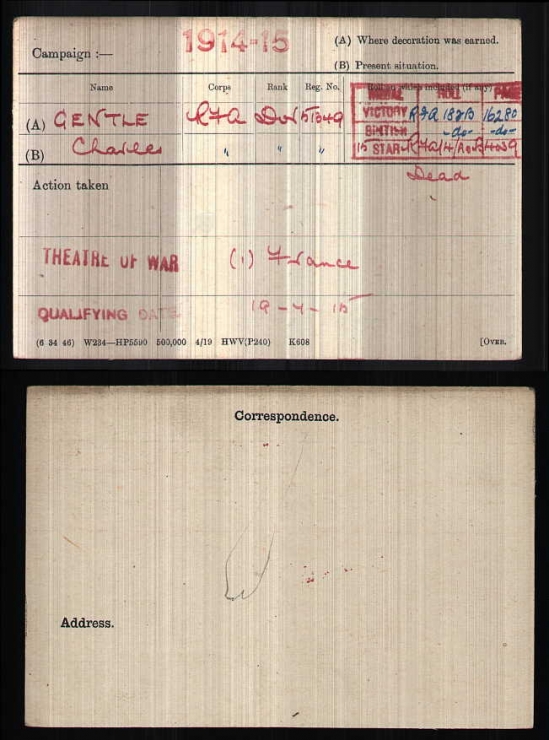 Campaign :— 1914-15
(A) Where decoration was earned.
(B) Present situation.
Name Corps Rank Reg. No. Roll on which included (if any)
MEDAL ROLL PAGE
(A) GENTLE RFA Dvr VICTORY RFA 182B 16280
(B) Charles " " " BRITISH -do- -do-
15 STAR
Dead
Action taken
THEATRE OF WAR (1) France
QUALIFYING DATE
(6 34 46) W234—HP5590 500,000 4/19 HWV(P240) K608 [OVER.
Correspondence.
Address.